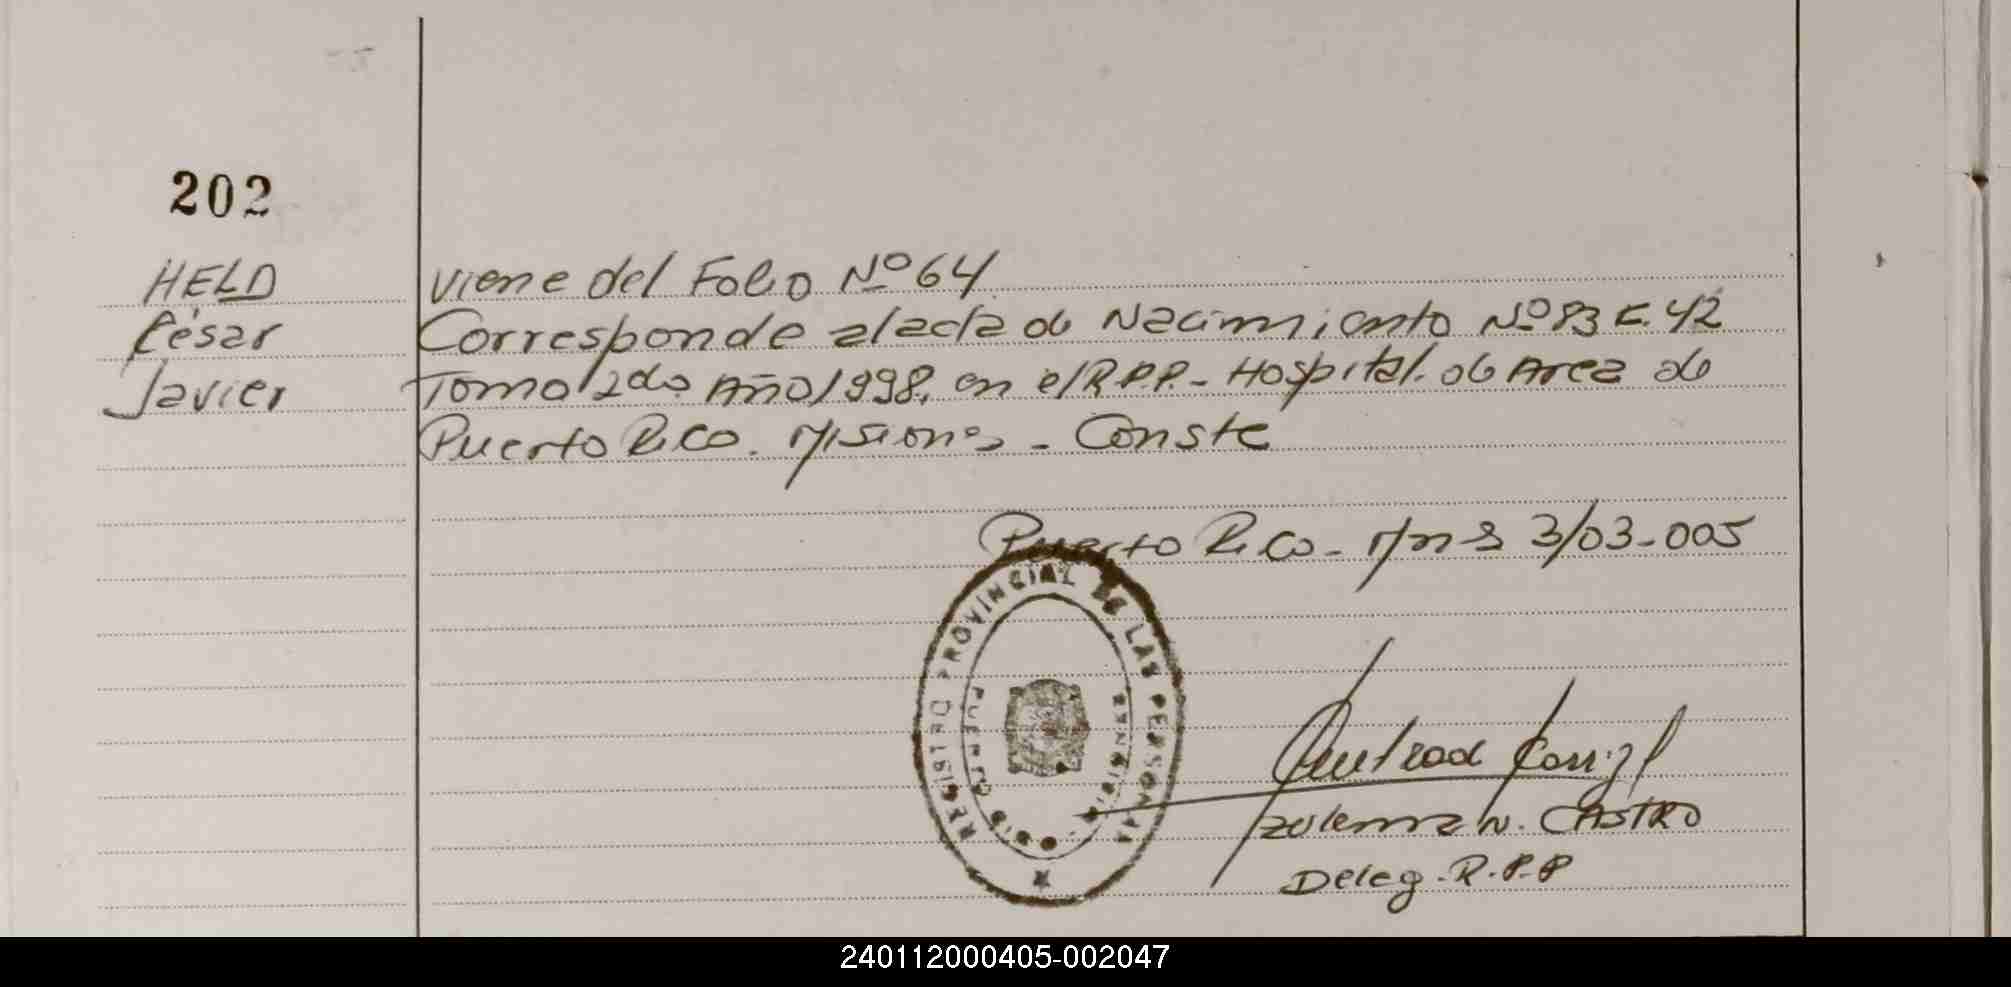 202
HELD
César
Javier
viene del Folio Nº 64
Corresponde al acta de Nacimiento Nº 83 F. 42
Tomo 2do. Año 1998. en el R.P.P. - Hospital. de Area de
Puerto Rico. Misiones - Conste
Puerto Rico - Mnes 3/03-005
REGISTRO PROVINCIAL DE LAS PERSONAS
PUERTO RICO MISIONES
Zulema N. CASTRO
Deleg. R.P.P
240112000405-002047